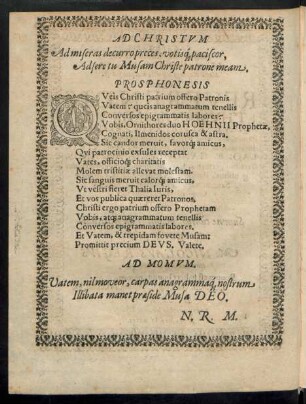 AD CHRISTVM
Ad miseras decurro preces, votisq; paciscor,
Adsere tu Musam Christe patrone meam.
PROSPHONESIS
QVeis Christi patrium offero Patronis
Vatem: queis anagrammatum tenellis
Conversos epigrammatis labores:
Vobis, Ornithores duo HOEHNII Prophetæ,
Cognati, Ilmenidos corusca & astra,
Sic candor meruit, favorq; amicus,
Qvi patrocinio exsules receptat
Vates, officioq; charitatis
Molem tristitiæ allevat molestam.
Sic sanguis meruit calorq; amicus,
Vt vestri fieret Thalia Iuris,
Et vos publica quæreret Patronos.
Christi ergo patrium offero Prophetam
Vobis, atq; anagrammatum tenellis
Conversos epigrammatis labores.
Et Vatem, & trepidam fovete Musam:
Promittit precium DEVS, Valete.
AD MOMVM.
Vatem, nil moveor, carpas anagrammaq; nostrum
Illibata manet præside Musa DEO.
N. R. M.